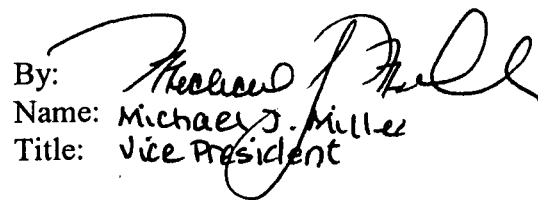 By: Michael J. Miller
Name: Michael J. Miller
Title: Vice President